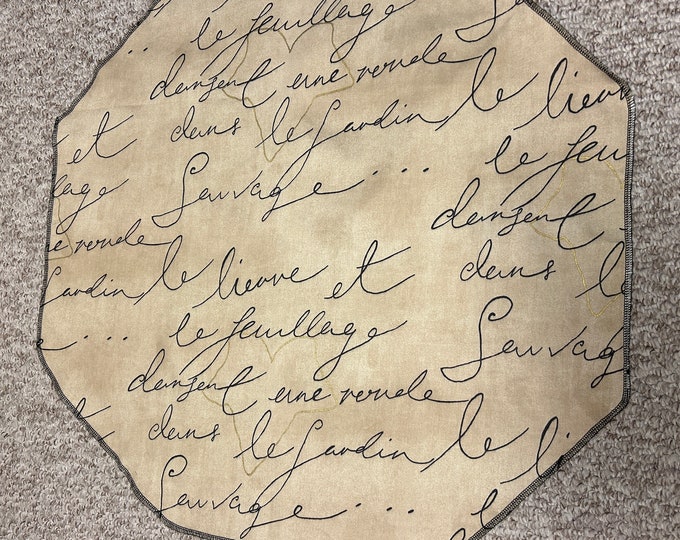 le feuillage
dansent une ronde
et dans le Jardin, le lievre
Sauvage... le feu
lage dansent
e ronde dans l
Jardin, le lievre et
e... le feuillage Sauvag
dansent une ronde
t dans le Jardin, le li
Sauvage... et